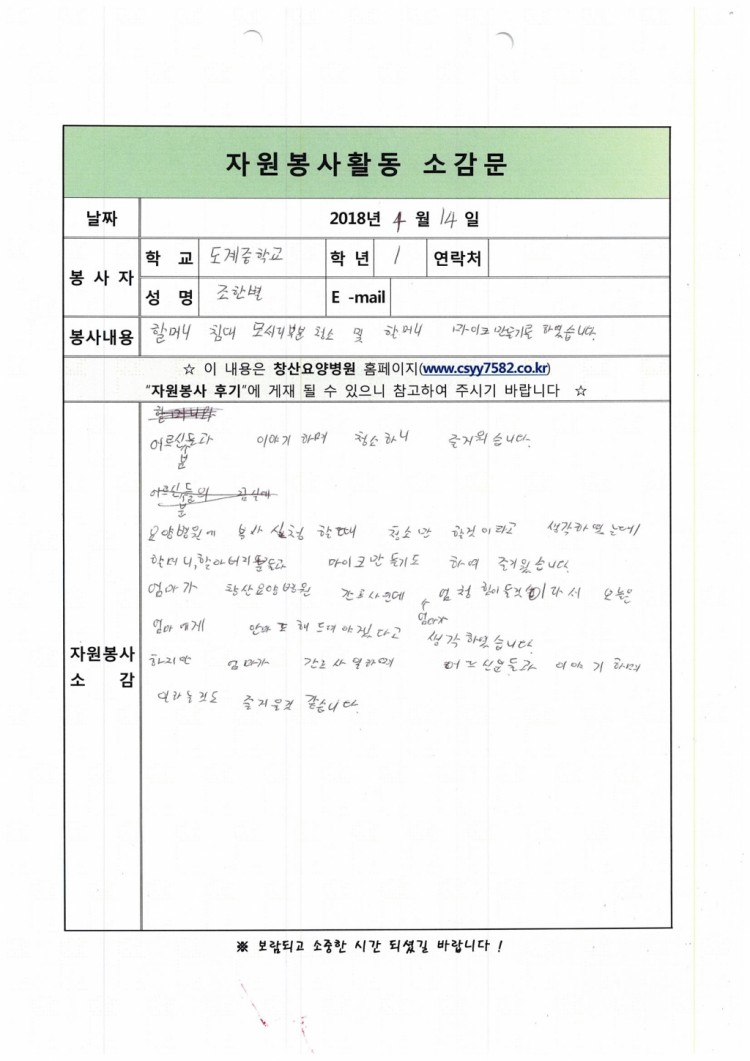 자원봉사활동 소감문
날짜 2018년 4 월 14 일
봉 사 자
학 교 도계중학교 학 년 1 연락처
성 명 조한별 E -mail
봉사내용 할머니 침대 모서리부분 청소 및 할머니 마이크 만들기를 하였습니다.
☆ 이 내용은 창산요양병원 홈페이지(www.csyy7582.co.kr)
"자원봉사 후기"에 게재 될 수 있으니 참고하여 주시기 바랍니다 ☆
자원봉사
소 감
할머니와
어르신분들과 이야기 하며 청소하니 즐거웠습니다.
어르신분들의
요양병원에 봉사 신청 할때 청소만 할것이라고 생각하였는데
할머니,할아버지분들과 마이크만들기도 하여 즐거웠습니다.
엄마가 창산요양병원 간호사인데 엄청 힘이들것이라서 오늘은
엄마에게 안마도 해 드려야겠다고 생각하였습니다
엄마가
하지만 엄마가 간호사 일하며 어르신분들과 이야기하며
일하는것도 즐거울것 같습니다.
※ 보람되고 소중한 시간 되셨길 바랍니다 !